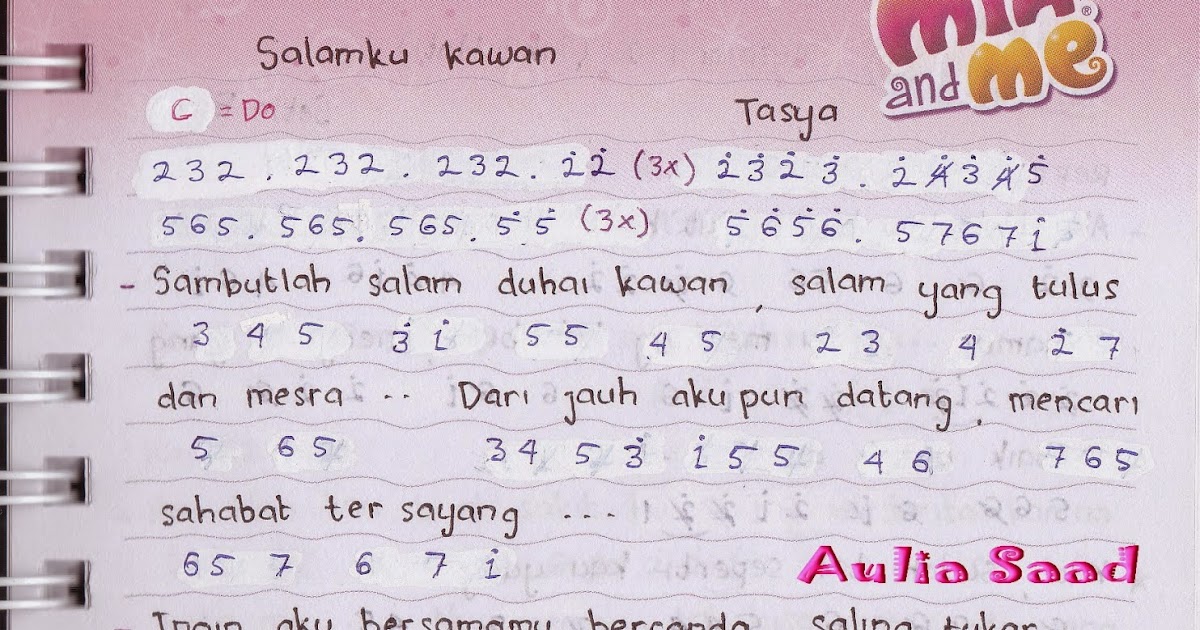 Salamku kawan
and me®
C = Do
Tasya
232 . 232 . 232 . 2̇2̇ (3x) 2̇3̇2̇3̇ . 2̇4̇3̇4̇5̇
565 . 565 . 565 . 5̇5̇ (3x) 5̇6̇5̇6̇ . 57671̇
- Sambutlah salam duhai kawan, salam yang tulus
3 4 5 3̇ 1̇ 5 5 4 5 2 3 4 2̇ 7
dan mesra .. Dari jauh akupun datang, mencari
5 6 5 3 4 5 3̇ 1̇ 5 5 4 6 7 6 5
sahabat ter sayang ....
6 5 7 6 7 1̇
Aulia Saad
- Ingin aku bersamamu bercanda saling tukar